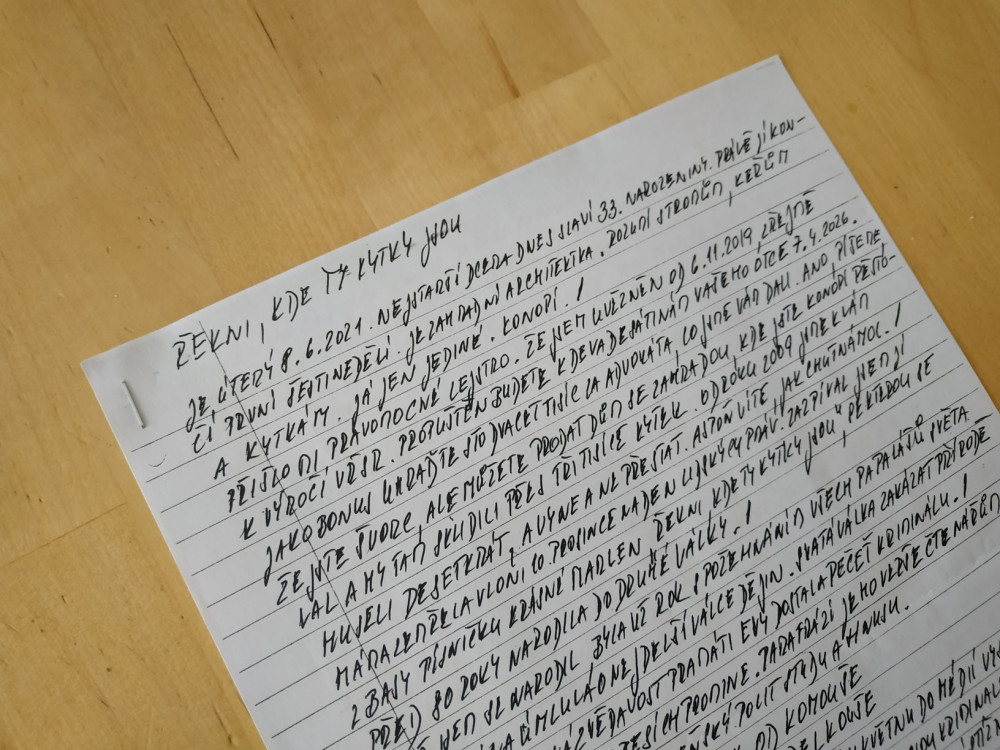 ŘEKNI, KDE TY KYTKY JSOU
JE ÚTERÝ 8.6.2021. NEJSTARŠÍ DCERA DNES SLAVÍ 33. NAROZENINY. PRÁVĚ JÍ KON-
ČÍ PRVNÍ ŠESTINEDĚLÍ. JE ZAHRADNÍ ARCHITEKTKA. ROZUMÍ STROMŮM, KEŘŮM
A KYTKÁM. JÁ JEN JEDINÉ. KONOPÍ.!
PŘIŠLO MI PRAVOMOCNÉ LEJSTRO. ŽE JSEM UVĚZNĚN OD 6.11.2019, ZŘEJMĚ
K VÝROČÍ VŘSR. PROPUŠTĚN BUDETE K DEVADESÁTINÁM VAŠEHO OTCE 7.4.2026.
JAKO BONUS UHRAĎTE STO DVACET TISÍC ZA ADVOKÁTA, CO JSME VÁM DALI. ANO, PÍŠETE,
ŽE JSTE ŠVORC, ALE MŮŽETE PRODAT DŮM SE ZAHRADOU, KDE JSTE KONOPÍ PĚSTO-
VAL A MY TAM SKLIDILI PŘES TŘI TISÍCE KYTEK. OD ROKU 2009 JSME K VÁM
MUSELI DESETKRÁT, A VY NE A NE PŘESTAT. ASPOŇ VÍTE, JAK CHUTNÁ MOC.!
MÁ DAZEMĚLA VLONI 10. PROSINCE NA DEN LIDSKÝCH PRÁV. ZAZPÍVAL JSEM JÍ
Z BASY PÍSNIČKU KRÁSNÉ MARLEN ŘEKNI, KDE TY KYTKY JSOU, PĚKTEROU SE
PŘED 80 ROKY NARODILA DO DRUHÉ VÁLKY.!
SEM SE NARODIL, BYLA UŽ ROK S POŽEHNÁNÍM VŠECH PAPALÁŠŮ SVĚTA
MLUVA O NEJDELŠÍ VÁLCE DĚJIN. SVATÁ VÁLKA ZAKÁZAT PŘÍRODĚ
ZVĚDAVOST PRAMÁTI EVY DOSTALA PEČEŤ KRIMINÁLU.!
RODINĚ. PARAFRÁZÍ JEHO VERŠE ČTE NÁČŮM
POLIT STUDU A HNUSU.
OD KOMOUŠE
KVĚTNU DO MÉDIÍ